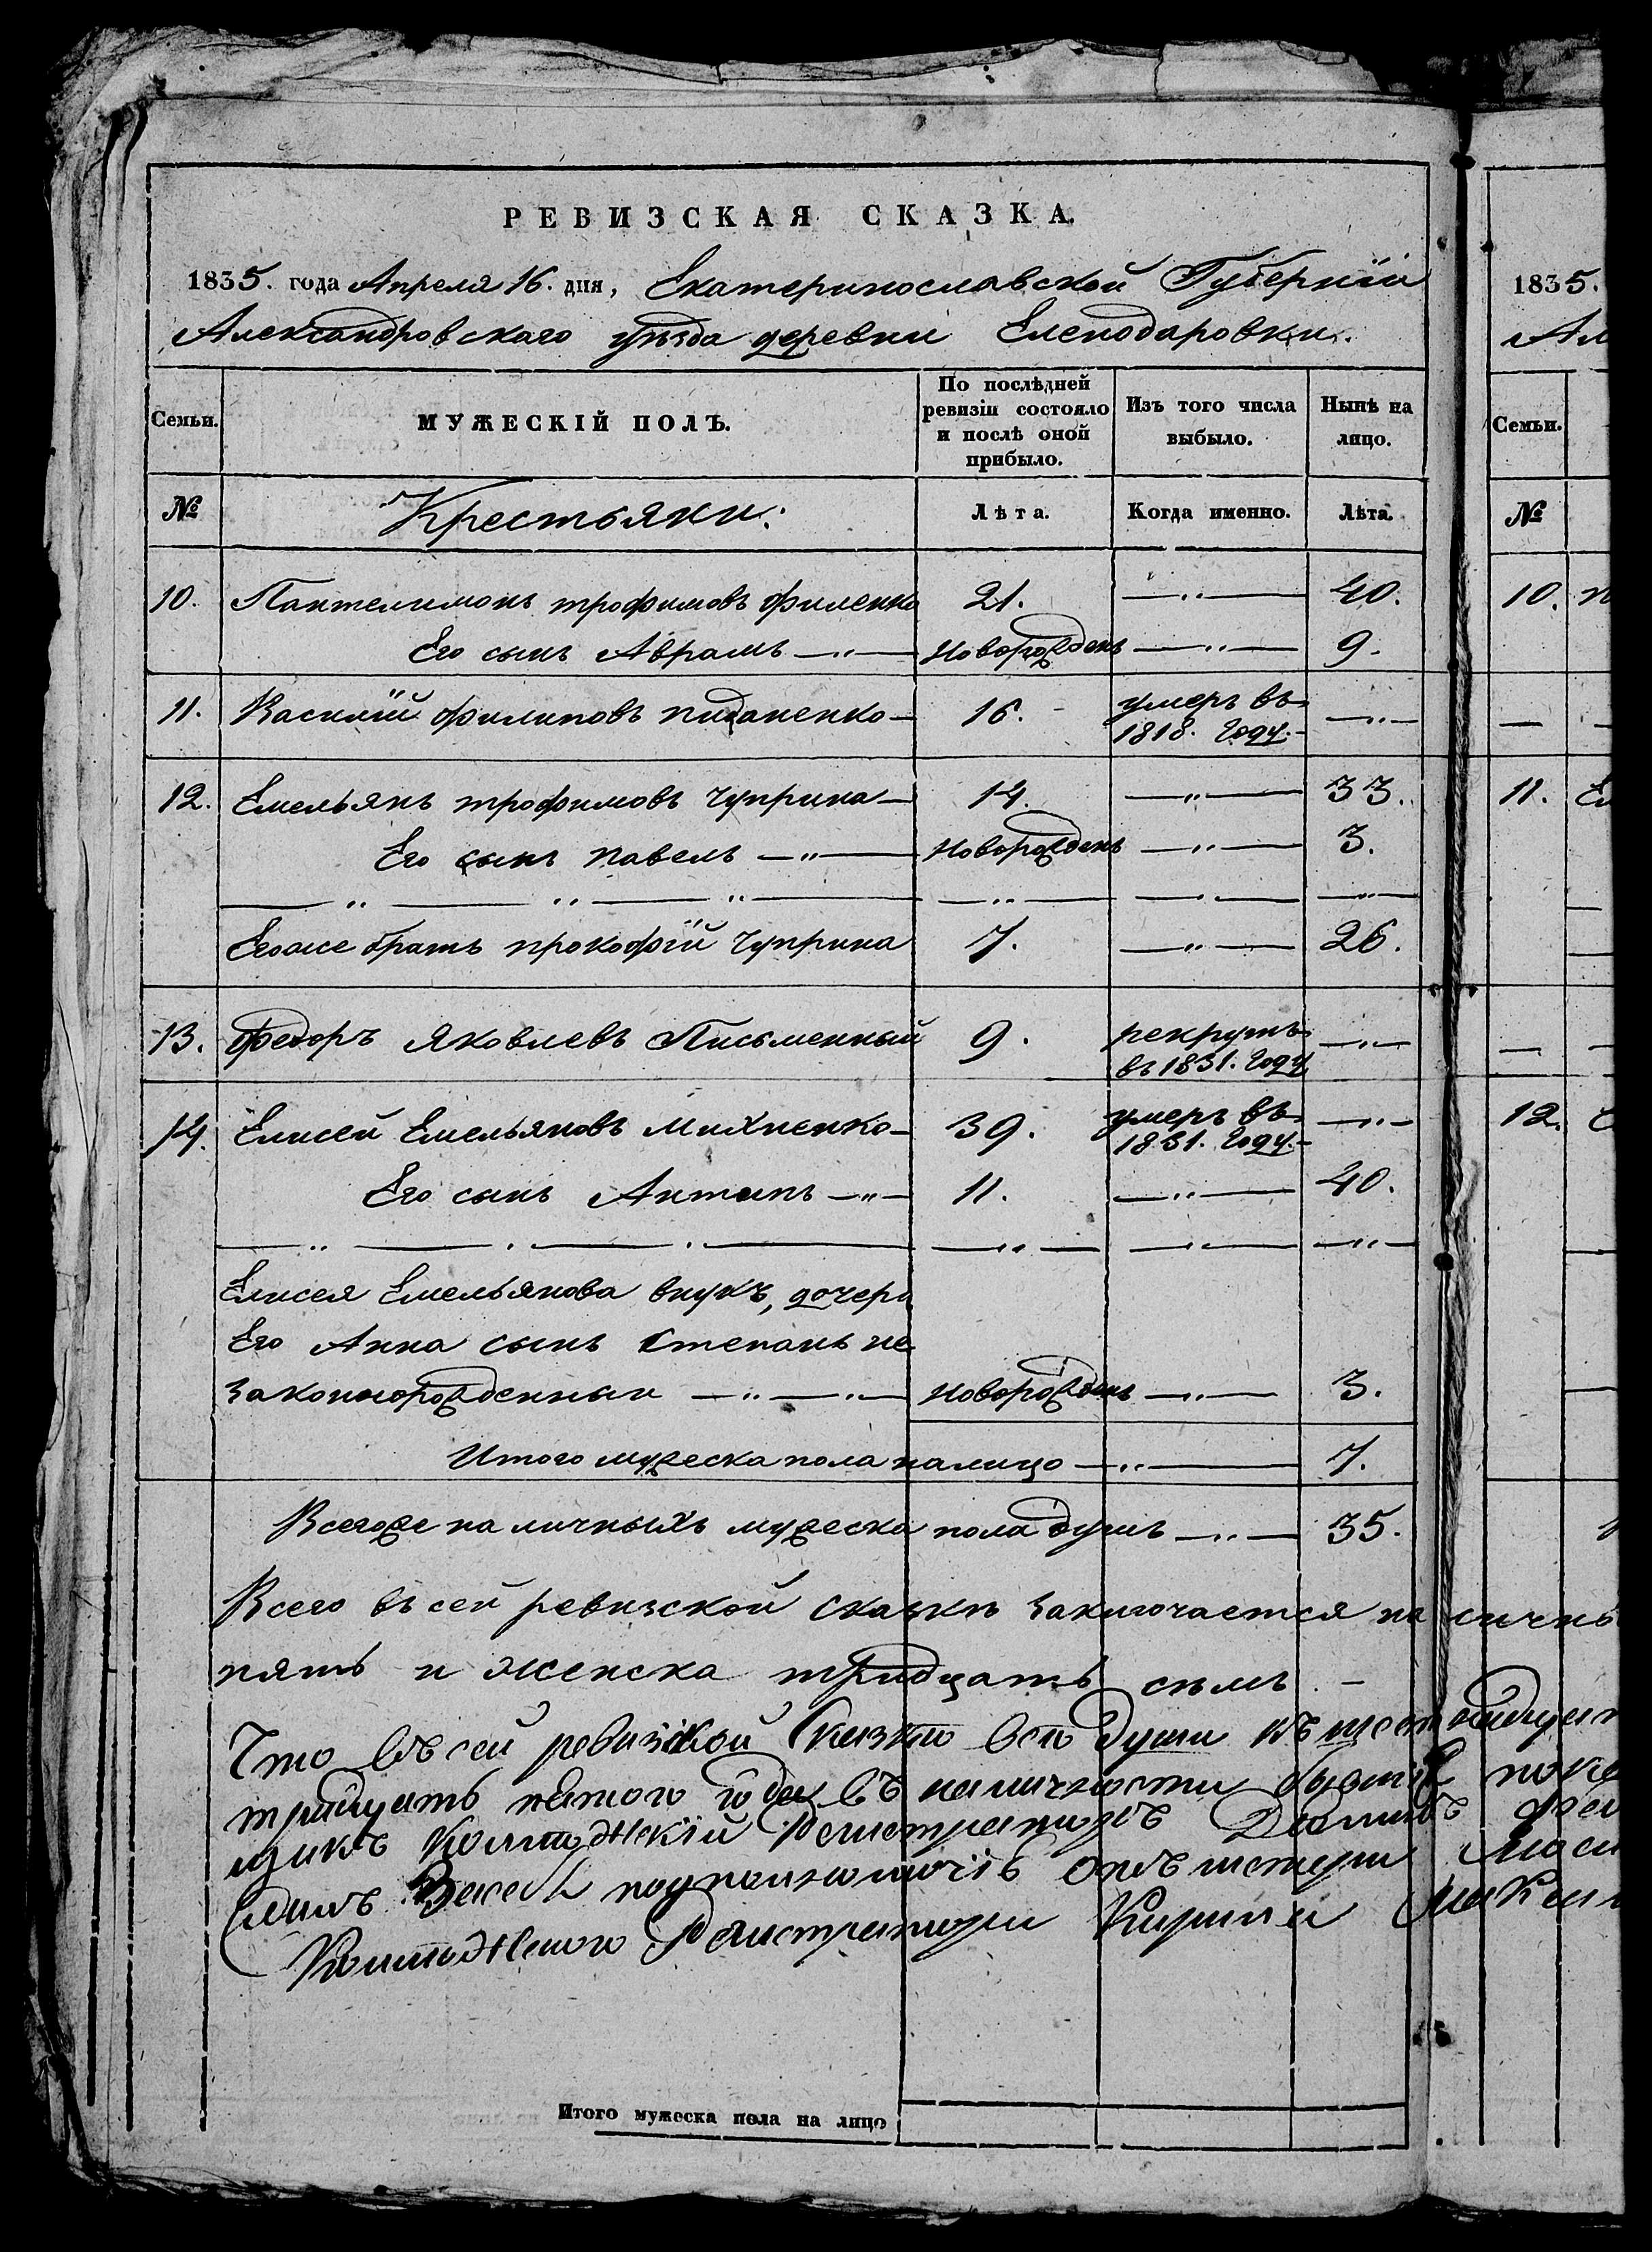 РЕВИЗСКАЯ СКАЗКА.
1835. года Апреля 16. дня, Екатеринославской Губернїи
Александровскаго уѣзда деревни Еленодаровки.
Семьи.
МУЖЕСКІЙ ПОЛЪ.
По послѣдней
ревизіи состояло
и послѣ оной
прибыло.
Изъ того числа
выбыло.
Нынѣ на
лицо.
№
Крестьяни:
Лѣта.
Когда именно.
Лѣта.
10. Пантелимонъ трофимовъ Филенко 21. —„— 40.
Его сынъ Аврамъ —„— новорожденъ —„— 9.
11. Василїй Филиповъ — 16. умеръ въ —„—
1818. году.—
12. Емельянъ трофимовъ Чуприна — 14. —„— 33.
Его сынъ павелъ —„— новорожденъ —„— 3.
—„—„—„— —„— —„— —„—
Егоже братъ прокофїй Чуприна 7. —„— 26.
13. Федоръ Яковлевъ Письменный 9. рекрутъ —„—
въ 1831. году
14. Елисей Емельяновъ Михненко — 39. умеръ въ —„—
1831. году.—
Его сынъ Антипъ —„— 11. —„— 40.
—„—„—„— —„— —„— —„—
Елисея Емельянова внукъ, дочери
Его Анна сынъ Степанъ не
законнорожденный —„—„— новорожденъ —„— 3.
Итого мужеска пола налицо —„— 7.
Всегоже наличныхъ мужеска пола душъ —„— 35.
Всего въ сей ревизской сказкѣ заключается на личны
пять и женска тридцать сѣмъ. —
Что въ сей ревизской Сказки всѣ души къ
тридцать пятого года въ наличности
щикъ Коллежскїй Регистраторъ
Коллежского Регистратора Кирила
Итого мужеска пола на лицо
1835.
Ал
Семьи.
№
10. п
— —
11. Ем
— —
12.